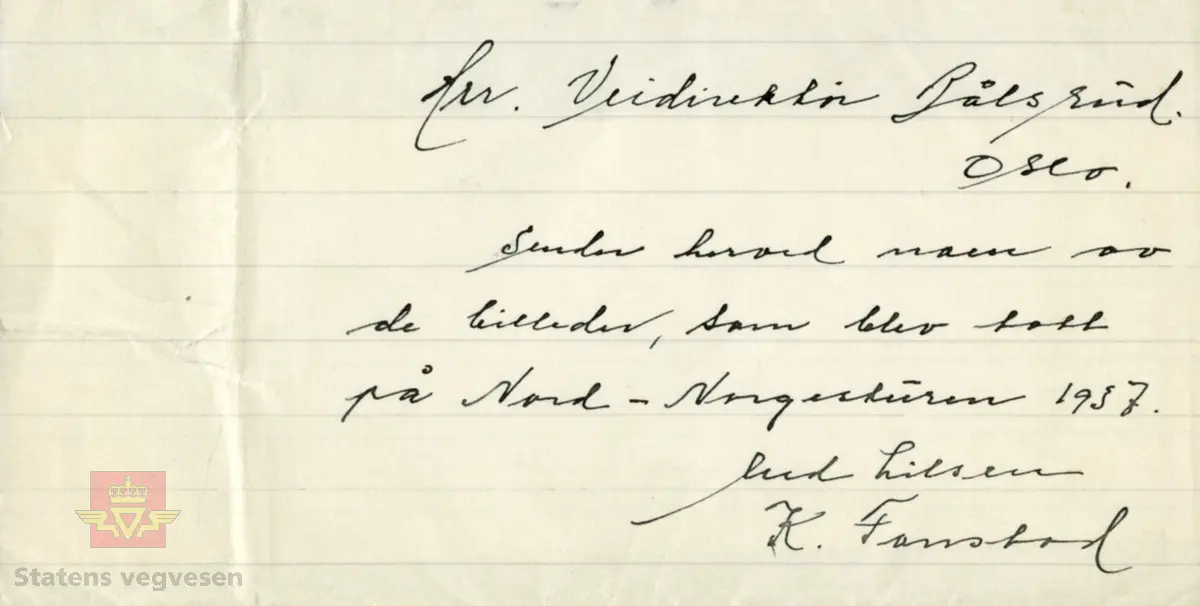 Hrr. Veidirektør Bålsrud.
Oslo.
Sender herved noen av
de billeder, som blev tatt
på Nord-Norgesturen 1937.
Med hilsen
K.
Statens vegvesen